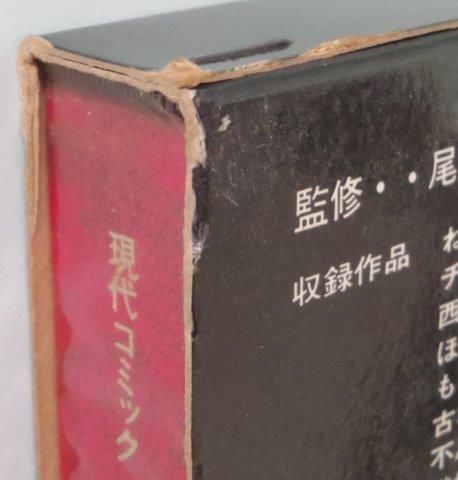 現代コミック
監修・・尾
収録作品
ね
チ
西
ほ
も
古
不